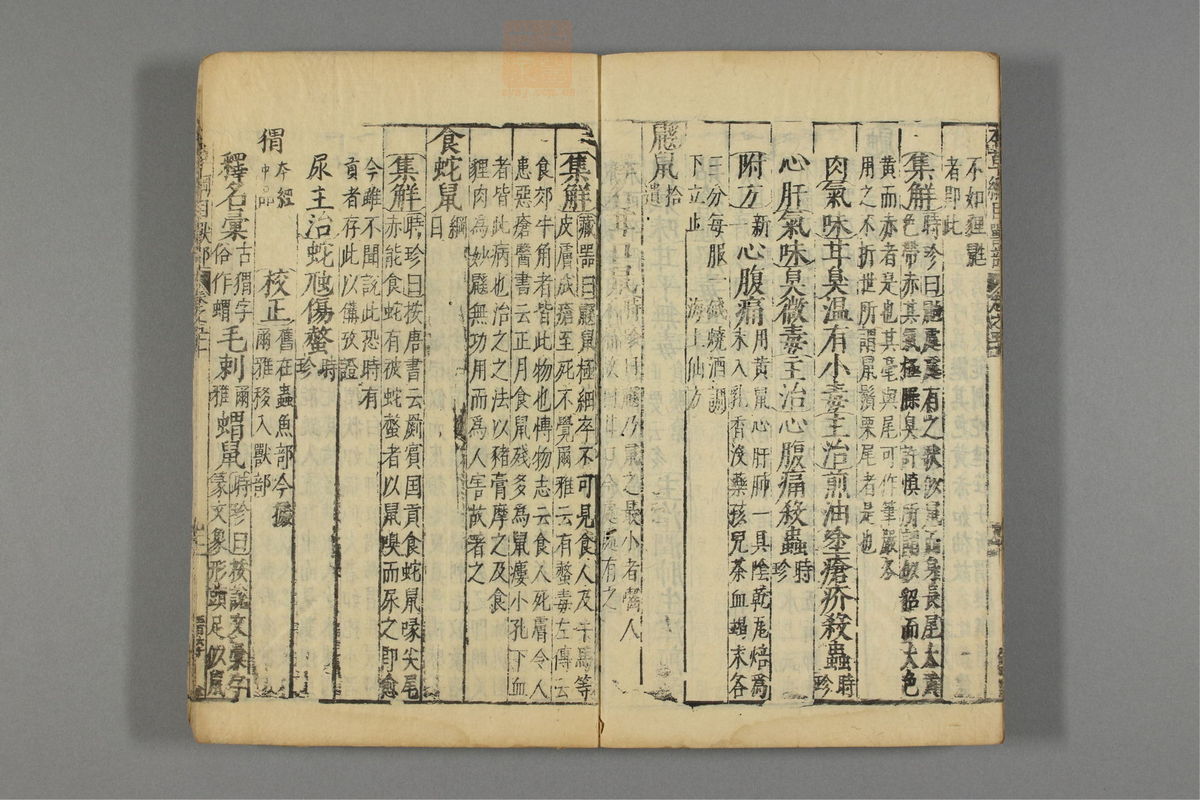 不如狸鼪
者即此
集解時珍曰鼬處處有之狀似鼠而身長尾大黃
色帶赤其氣極臊臭許慎所謂似貂而大色
黃而赤者是也其毫與尾可作筆嚴冬
用之不折世所謂鼠鬚栗尾者是也
肉氣味甘臭溫有小毒主治煎油塗瘡疥殺蟲時珍
心肝氣味臭微毒主治心腹痛殺蟲時珍
附方新心腹痛用黃鼠心肝肺一具陰乾瓦焙爲
末入乳香沒藥孩兒茶血竭末各
三分每服一錢燒酒調
下立止 海上仙方
鼷鼠拾遺
時珍曰 乃鼠之最小者 人
有之
集解藏器曰鼷鼠極細卒不可見食人及牛馬等
皮膚成瘡至死不覺爾雅云有螫毒左傳云
食郊牛角者皆此物也博物志云食人死膚令人
患惡瘡醫書云正月食鼠殘多爲鼠瘻小孔下血
者皆此病也治之之法以豬膏摩之及食
狸肉爲妙鼷無功用而爲人害故著之
食蛇鼠綱目
集解時珍曰按唐書云罽賓国貢食蛇鼠喙尖尾
赤能食蛇有被蛇螫者以鼠嗅而尿之即愈
今雖不聞說此恐時有
貢者存此以備攷證
尿主治蛇虺傷螫時珍
猬本經中品 校正舊在蟲魚部今據
爾雅移入獸部
釋名彙古猬字俗作蝟毛刺爾雅蝟鼠時珍曰按說文彙字
篆文象形頭足似鼠